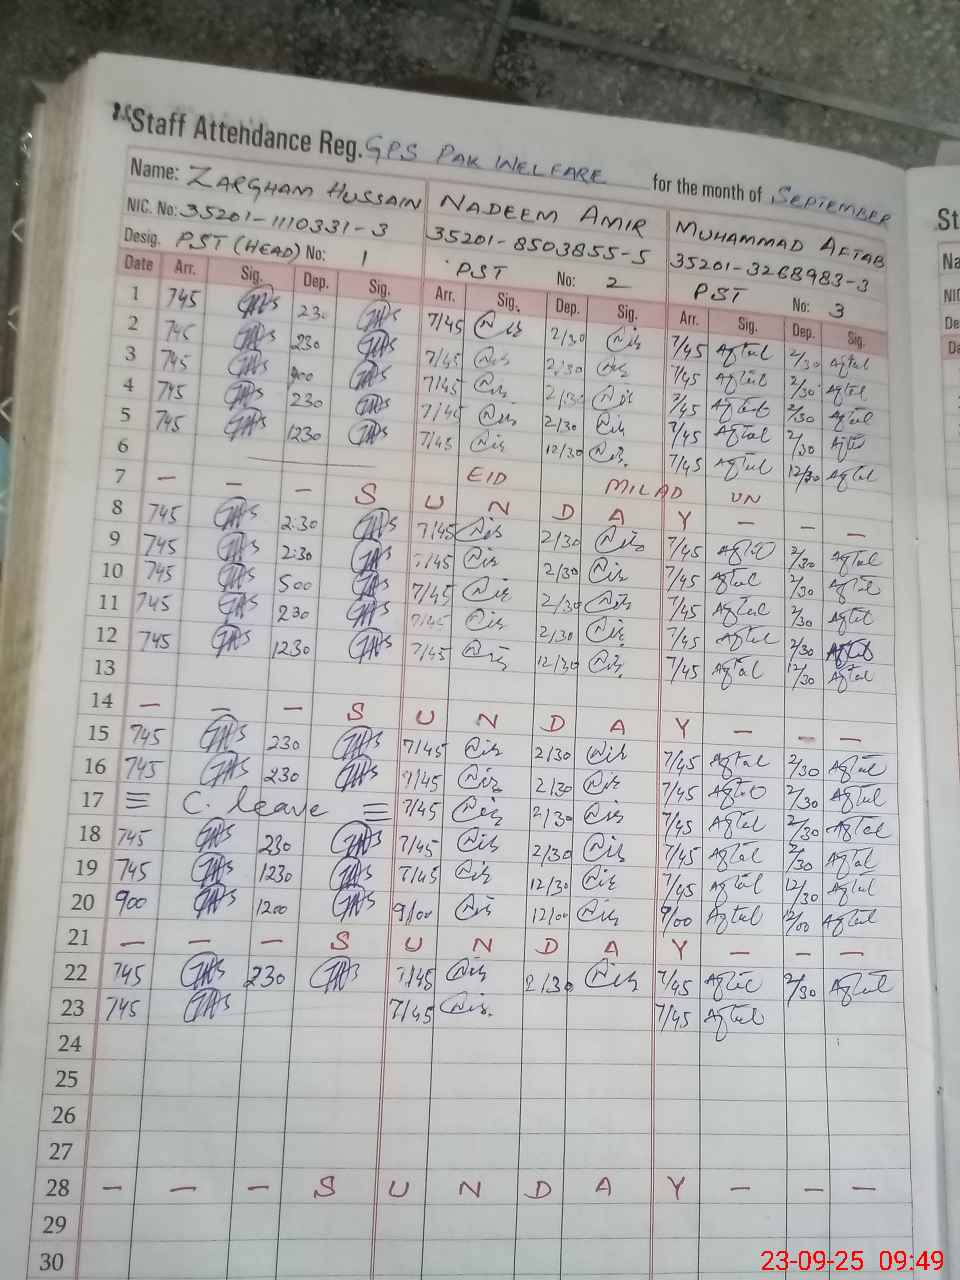 Staff Attendance Reg. GPS PAK WELFARE for the month of SEPTEMBER
Name: ZARGHAM HUSSAIN NADEEM AMIR MUHAMMAD AFTAB
NIC. No: 35201-1110331-3 35201-8503855-5 35201-3268983-3
Desig. PST (HEAD) No: 1 PST No: 2 PST No: 3
Date Arr. Sig. Dep. Sig. Arr. Sig. Dep. Sig. Arr. Sig. Dep. Sig.
1 745 230 7/45 2/30 7/45 Aftab 2/30 Aftab
2 745 230 7/45 2/30 7/45 Aftab 2/30 Aftab
3 745 7/45 2/30 7/45 Aftab 2/30 Aftab
4 745 230 7/45 2/30 7/45 Aftab 2/30 Aftab
5 745 1230 7/45 12/30 7/45 Aftab 12/30 Aftab
6 EID MILAD UN
7 — — — S U N D A Y — — —
8 745 2:30 7/45 2/30 7/45 Aftab 2/30 Aftab
9 745 2:30 7/45 2/30 7/45 Aftab 2/30 Aftab
10 745 500 7/45 2/30 7/45 Aftab 2/30 Aftab
11 745 230 7/45 2/30 7/45 Aftab 2/30 Aftab
12 745 1230 7/45 12/30 7/45 Aftab 12/30 Aftab
13
14 — — — S U N D A Y — — —
15 745 230 7/45 2/30 7/45 Aftab 2/30 Aftab
16 745 230 7/45 2/30 7/45 Aftab 2/30 Aftab
17 C. leave 7/45 2/30 7/45 Aftab 2/30 Aftab
18 745 230 7/45 2/30 7/45 Aftab 2/30 Aftab
19 745 1230 7/45 12/30 7/45 Aftab 12/30 Aftab
20 900 1200 9/00 12/00 9/00 Aftab 12/00 Aftab
21 — — — S U N D A Y — — —
22 745 230 7/45 2/30 7/45 Aftab 2/30 Aftab
23 745 7/45 7/45 Aftab
24
25
26
27
28 — — — S U N D A Y — — —
29
30
23-09-25 09:49